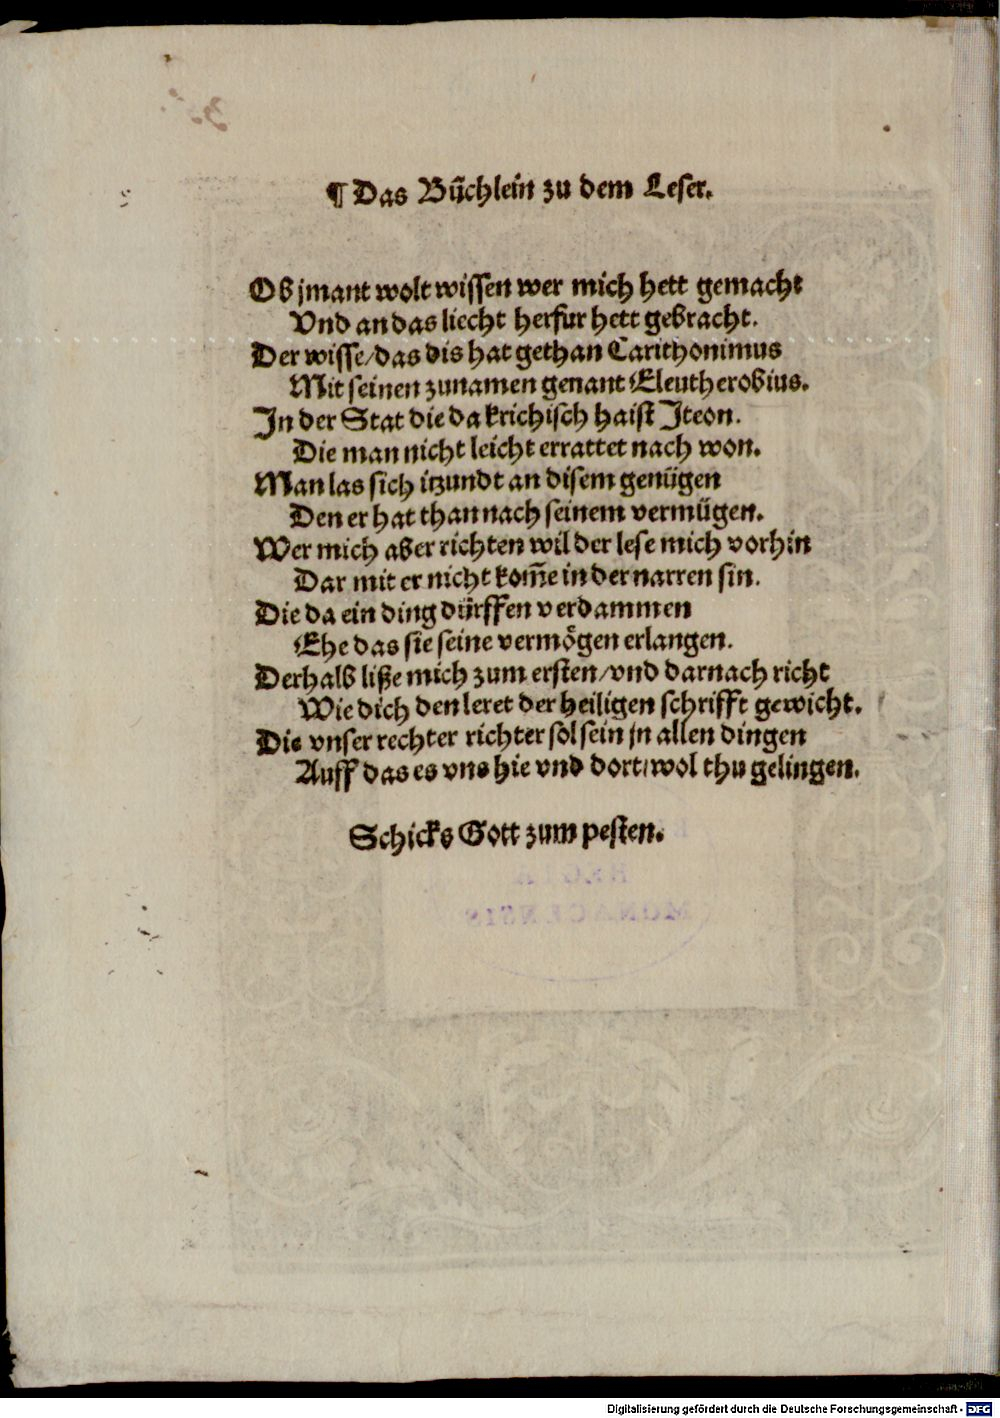 ¶ Das Bu̔chlein zu dem Leser.
Ob jmant wolt wissen wer mich hett gemacht
Vnd an das liecht herfur hett gebracht.
Der wisse/das dis hat gethan Carithonimus
Mit seinen zunamen genant Eleutherobius.
In der Stat die da krichisch haist Iteon.
Die man nicht leicht errattet nach won.
Man las sich itzundt an disem genügen
Den er hat than nach seinem vermügen.
Wer mich aber richten wil der lese mich vorhin
Dar mit er nicht kom̄e in der narren sin.
Die da ein ding dürffen verdammen
Ehe das sie seine vermo̊gen erlangen.
Derhalb liße mich zum ersten/vnd darnach richt
Wie dich den leret der heiligen schrifft gewicht.
Die vnser rechter richter sol sein jn allen dingen
Auff das es vns hie vnd dort/wol thu gelingen.
Schicks Gott zum pesten.
REGIA
MONACENSIS
Digitalisierung gefördert durch die Deutsche Forschungsgemeinschaft - DFG